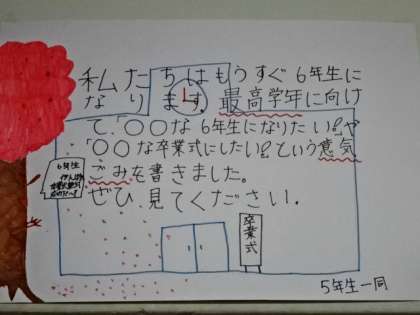 私たちはもうすぐ6年生に
なります。最高学年に向け
て、「〇〇な6年生になりたい!」や
「〇〇な卒業式にしたい!」という意気
ごみを書きました。
ぜひ見てください。
6年生
卒業式
5年生一同